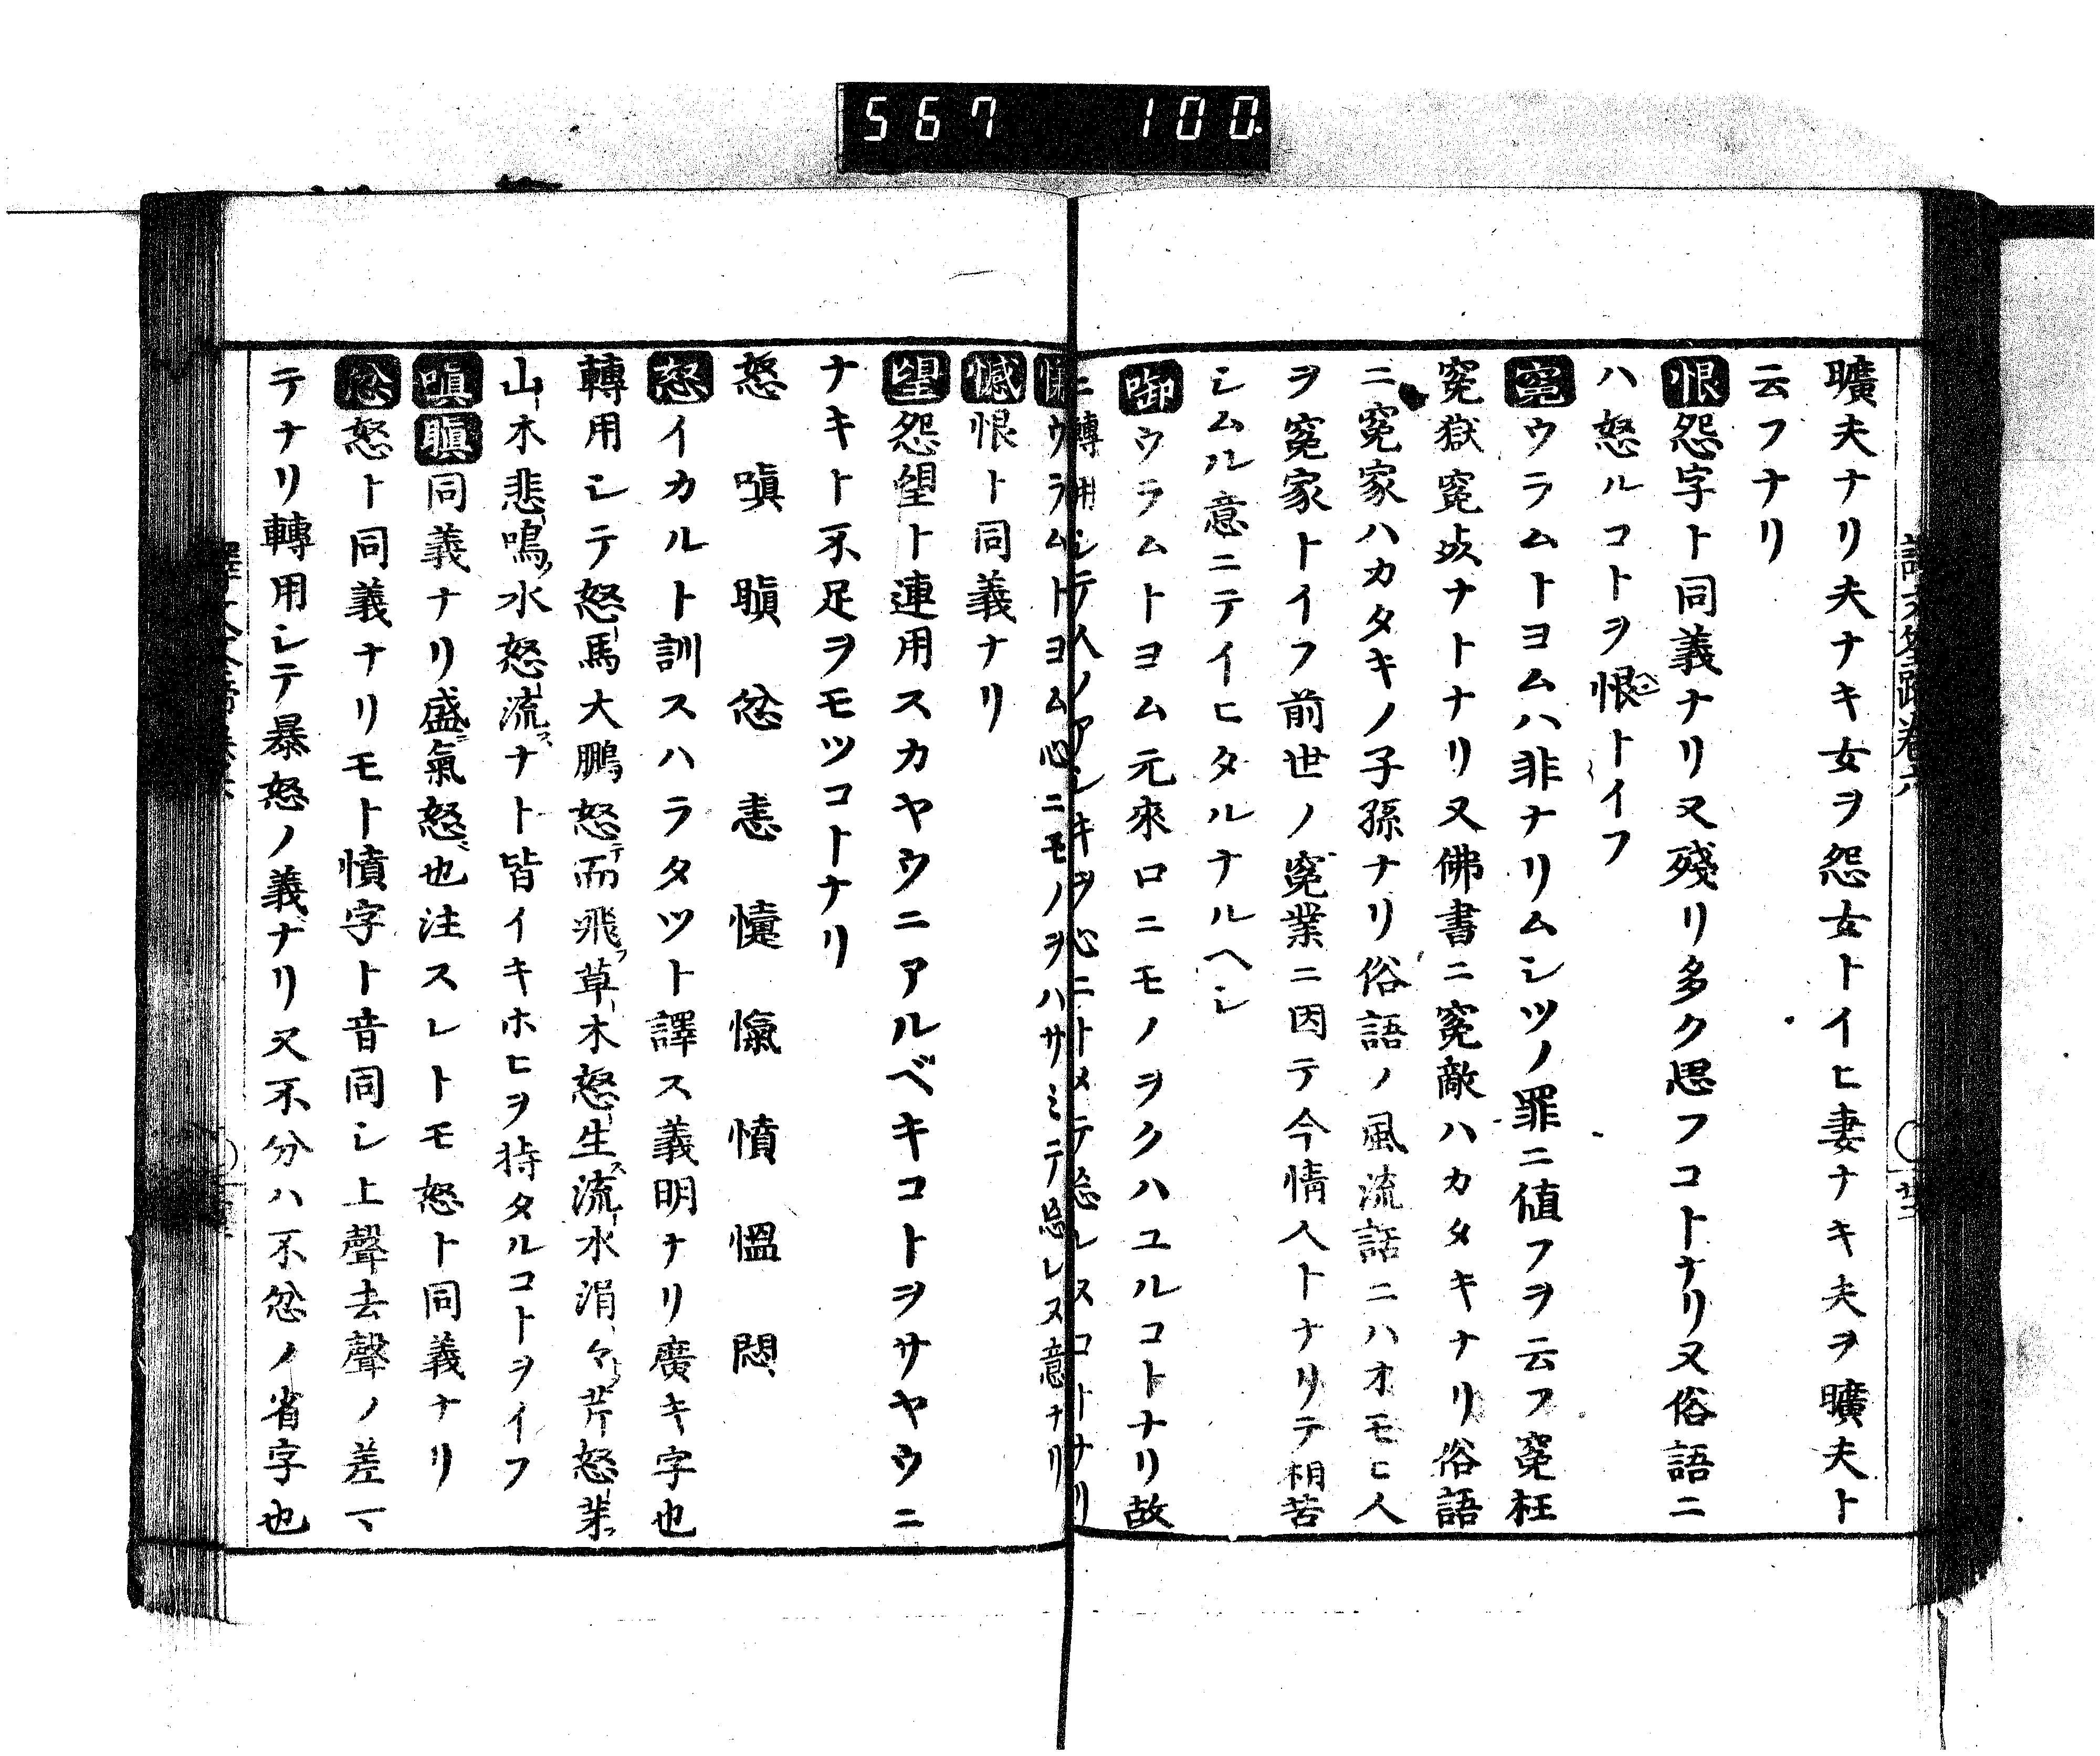 567 100
曠夫ナリ夫ナキ女ヲ怨女トイヒ妻ナキ夫ヲ曠夫ト
云フナリ
恨怨字ト同義ナリ又殘リ多ク思フコトナリ又俗語ニ
ハ怒ルコトヲ恨トイフ
寃ウラムトヨムハ非ナリムシツノ罪ニ値フヲ云フ寃枉
寃獄寃㱁ナトナリ又佛書ニ寃敵ハカタキナリ俗語
ニ寃家ハカタキノ子孫ナリ俗語ノ風流話ニハオモヒ人
ヲ寃家トイフ前世ノ寃業ニ因テ今情人トナリテ相苦
シムル意ニテイヒタルナルヘシ
啣ウラムトヨム元來口ニモノヲクハユルコトナリ故
ニ轉用シテ人ノアシキヲ心ニトメテ忘レヌコトナリ
ウラムトヨム心ニモノヲハサミテ忘レヌ意ナリ
憾恨ト同義ナリ
望怨望ト連用スカヤウニアルベキコトヲサヤウニ
ナキト不足ヲモツコトナリ
怒 嗔 瞋 忿 恚 懥 愾 憤 慍 悶
怒イカルト訓スハラタツト譯ス義明ナリ廣キ字也
轉用シテ怒馬大鵬怒而飛草木怒生流水涓々芹怒芽
山木悲鳴水怒流ナト皆イキホヒヲ持タルコトヲイフ
嗔瞋同義ナリ盛氣怒也注スレトモ怒ト同義ナリ
忿怒ト同義ナリモト憤字ト音同シ上聲去聲ノ差ヿ
テナリ轉用シテ暴怒ノ義ナリ又不分ハ不忿ノ省字也